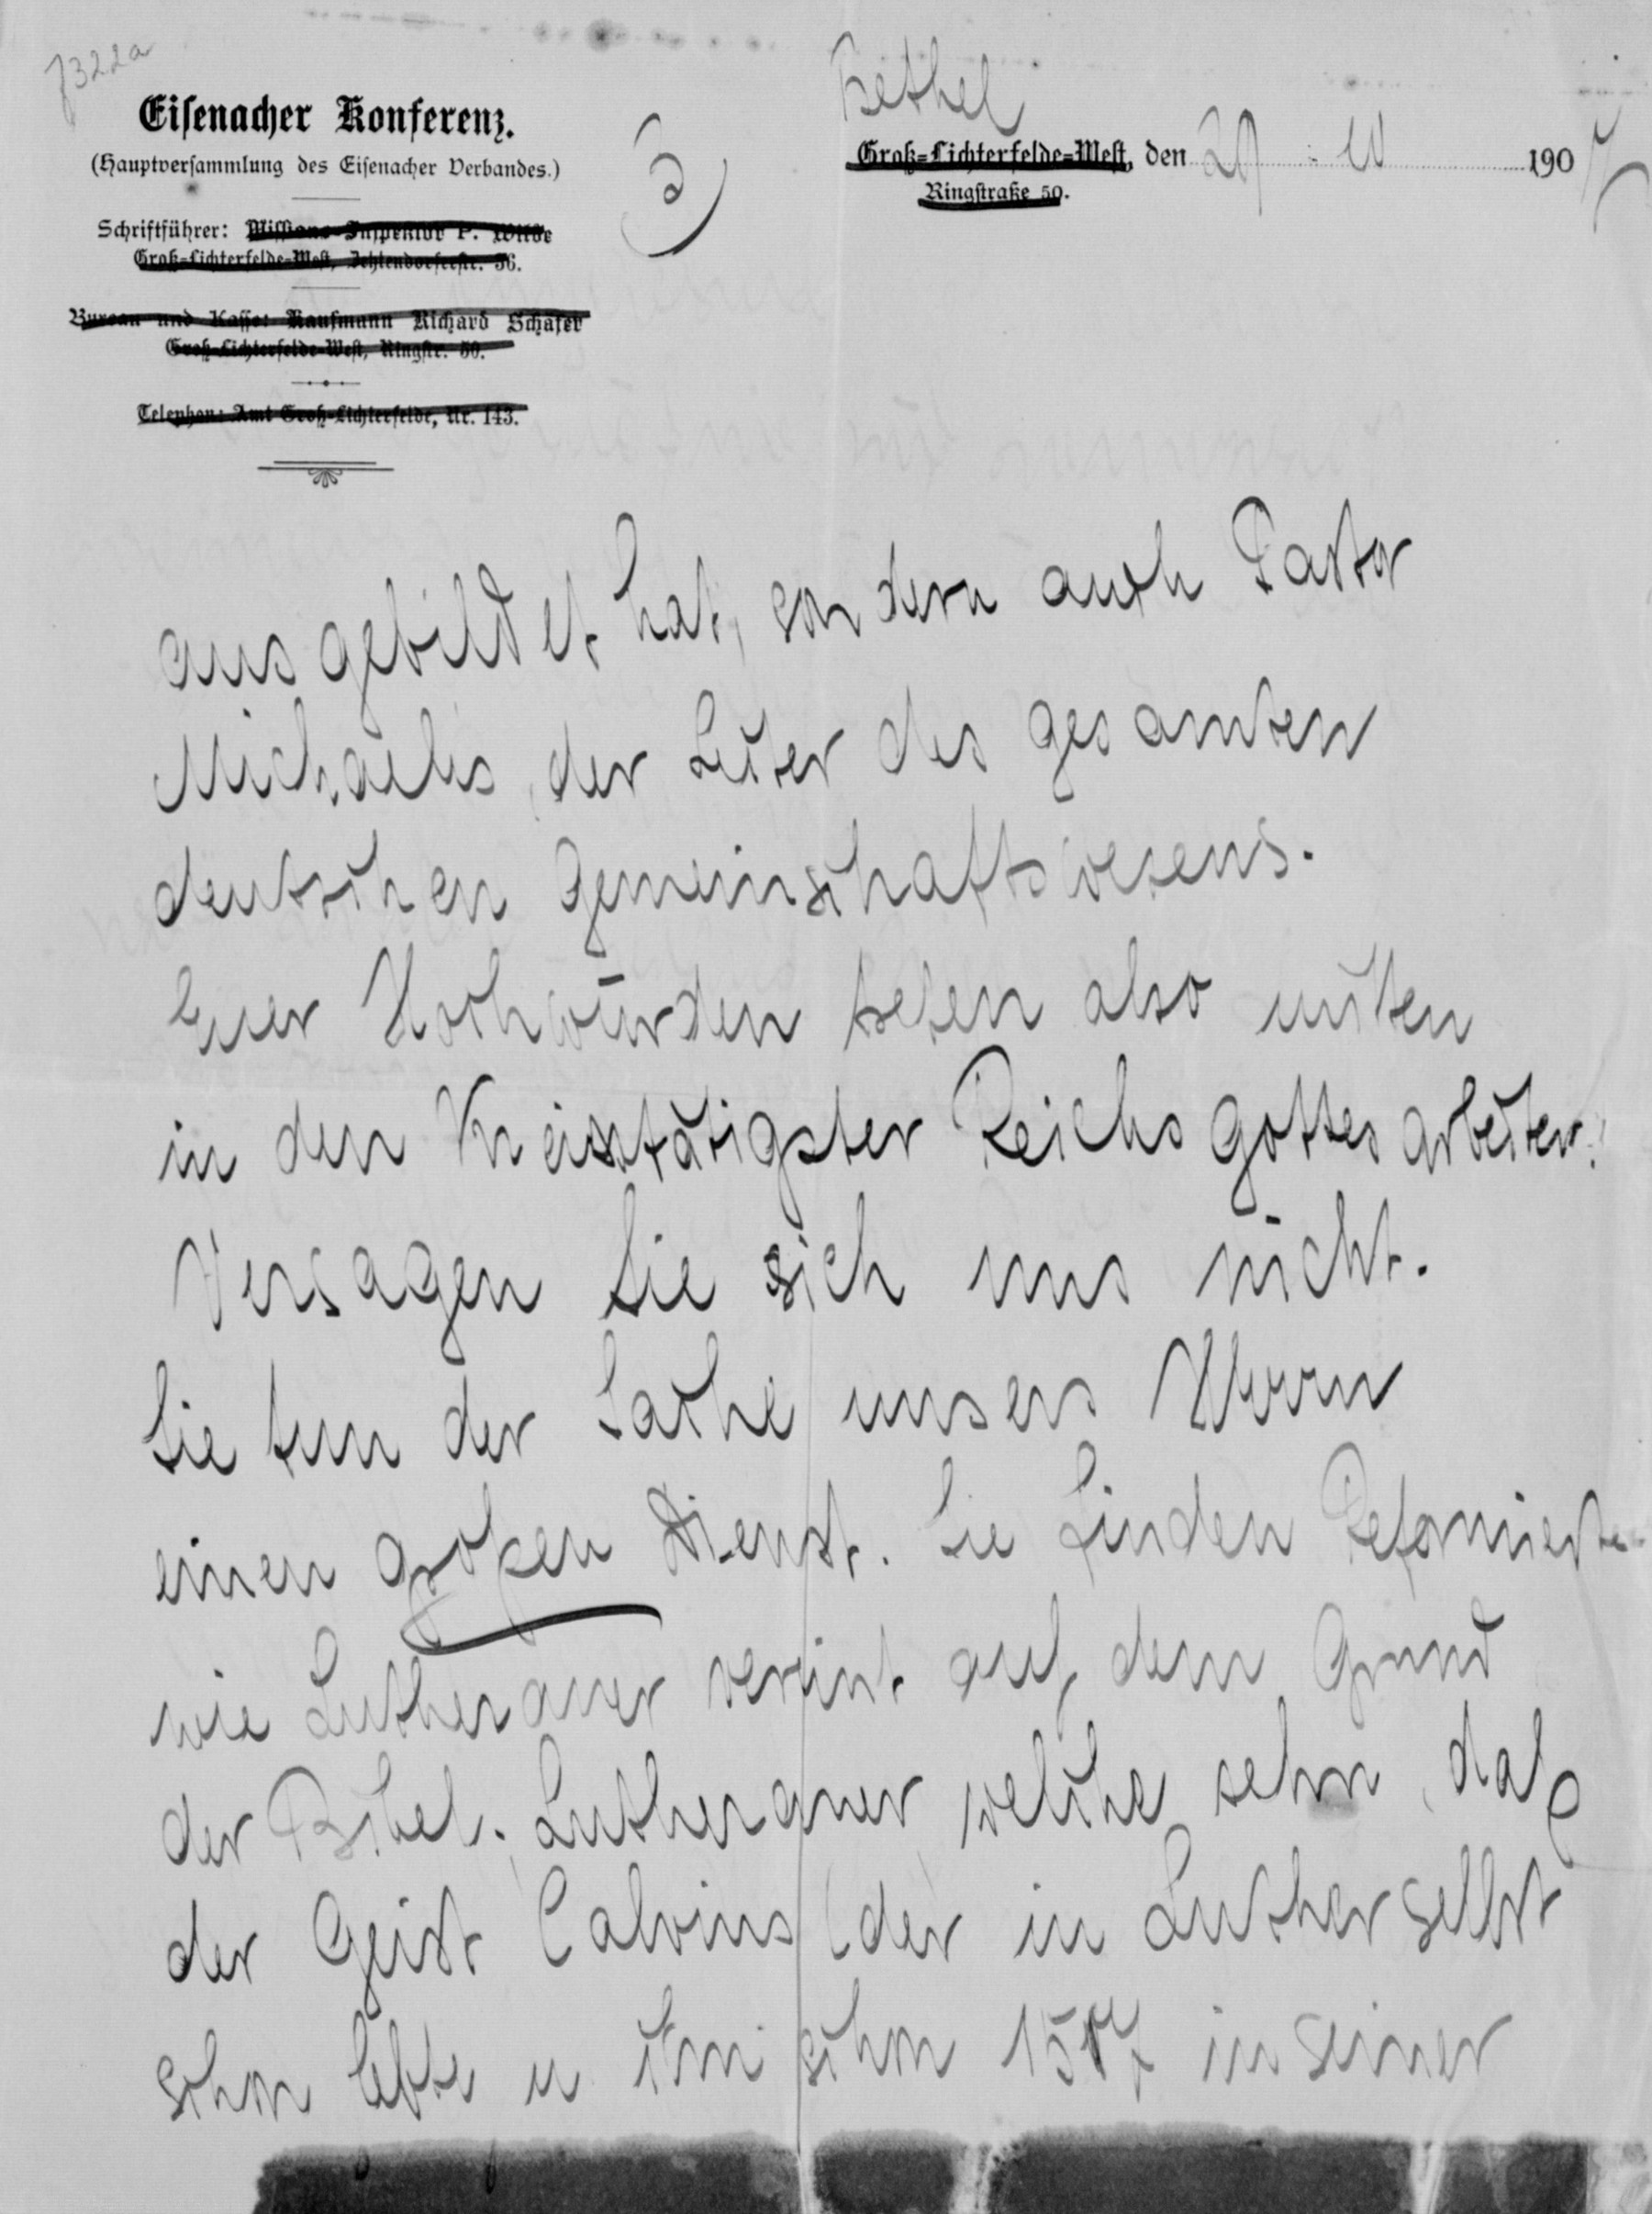 7322a
Eisenacher Konferenz.
(Hauptversammlung des Eisenacher Verbandes.)
Schriftführer: Missions-Inspektor P. Wilde
Groß-Lichterfelde-West, Zehlendorferstr. 56.
Bureau und Kasse: Kaufmann Richard Schäfer
Groß-Lichterfelde-West, Ringstr. 50.
Telephon: Amt Groß-Lichterfelde, Nr. 143.
3)
Bethel
Groß-Lichterfelde-West, den 29 10 1905
Ringstraße 50.
ausgebildet hat, sondern auch Pastor
Michaelis, der Leiter des gesamten
deutschen Gemeinschaftswesens.
Euer Hochwürden treten also mitten
in den Kreis tätigster Reichsgottesarbeiter.
Versagen Sie sich uns nicht.
Sie tun der Sache unsers Herrn
einen großen Dienst. Sie finden Reformierte
wie Lutheraner vereint auf dem Grund
der Bibel. Lutheraner, welche sehn, daß
der Geist Calvins (der in Luther selbst
schon lebte u ihm schon 1517 in seiner